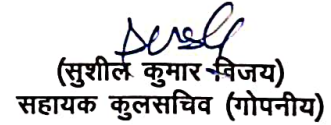 (सुशील कुमार विजय)
सहायक कुलसचिव (गोपनीय)